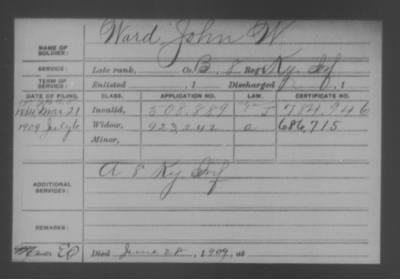 Ward, John W.
NAME OF SOLDIER:
SERVICE: Late rank, Co. B, 8 Reg't Ky. Inf
TERM OF SERVICE: Enlisted , 1 Discharged , 1
DATE OF FILING. CLASS. APPLICATION NO. LAW. CERTIFICATE NO.
Mar 21 Invalid, 508,889 784,946
1909 July 6 Widow, 923,242 686,715
Minor,
ADDITIONAL SERVICES: A 8 Ky. Inf
REMARKS:
Died June 28, 1909, at